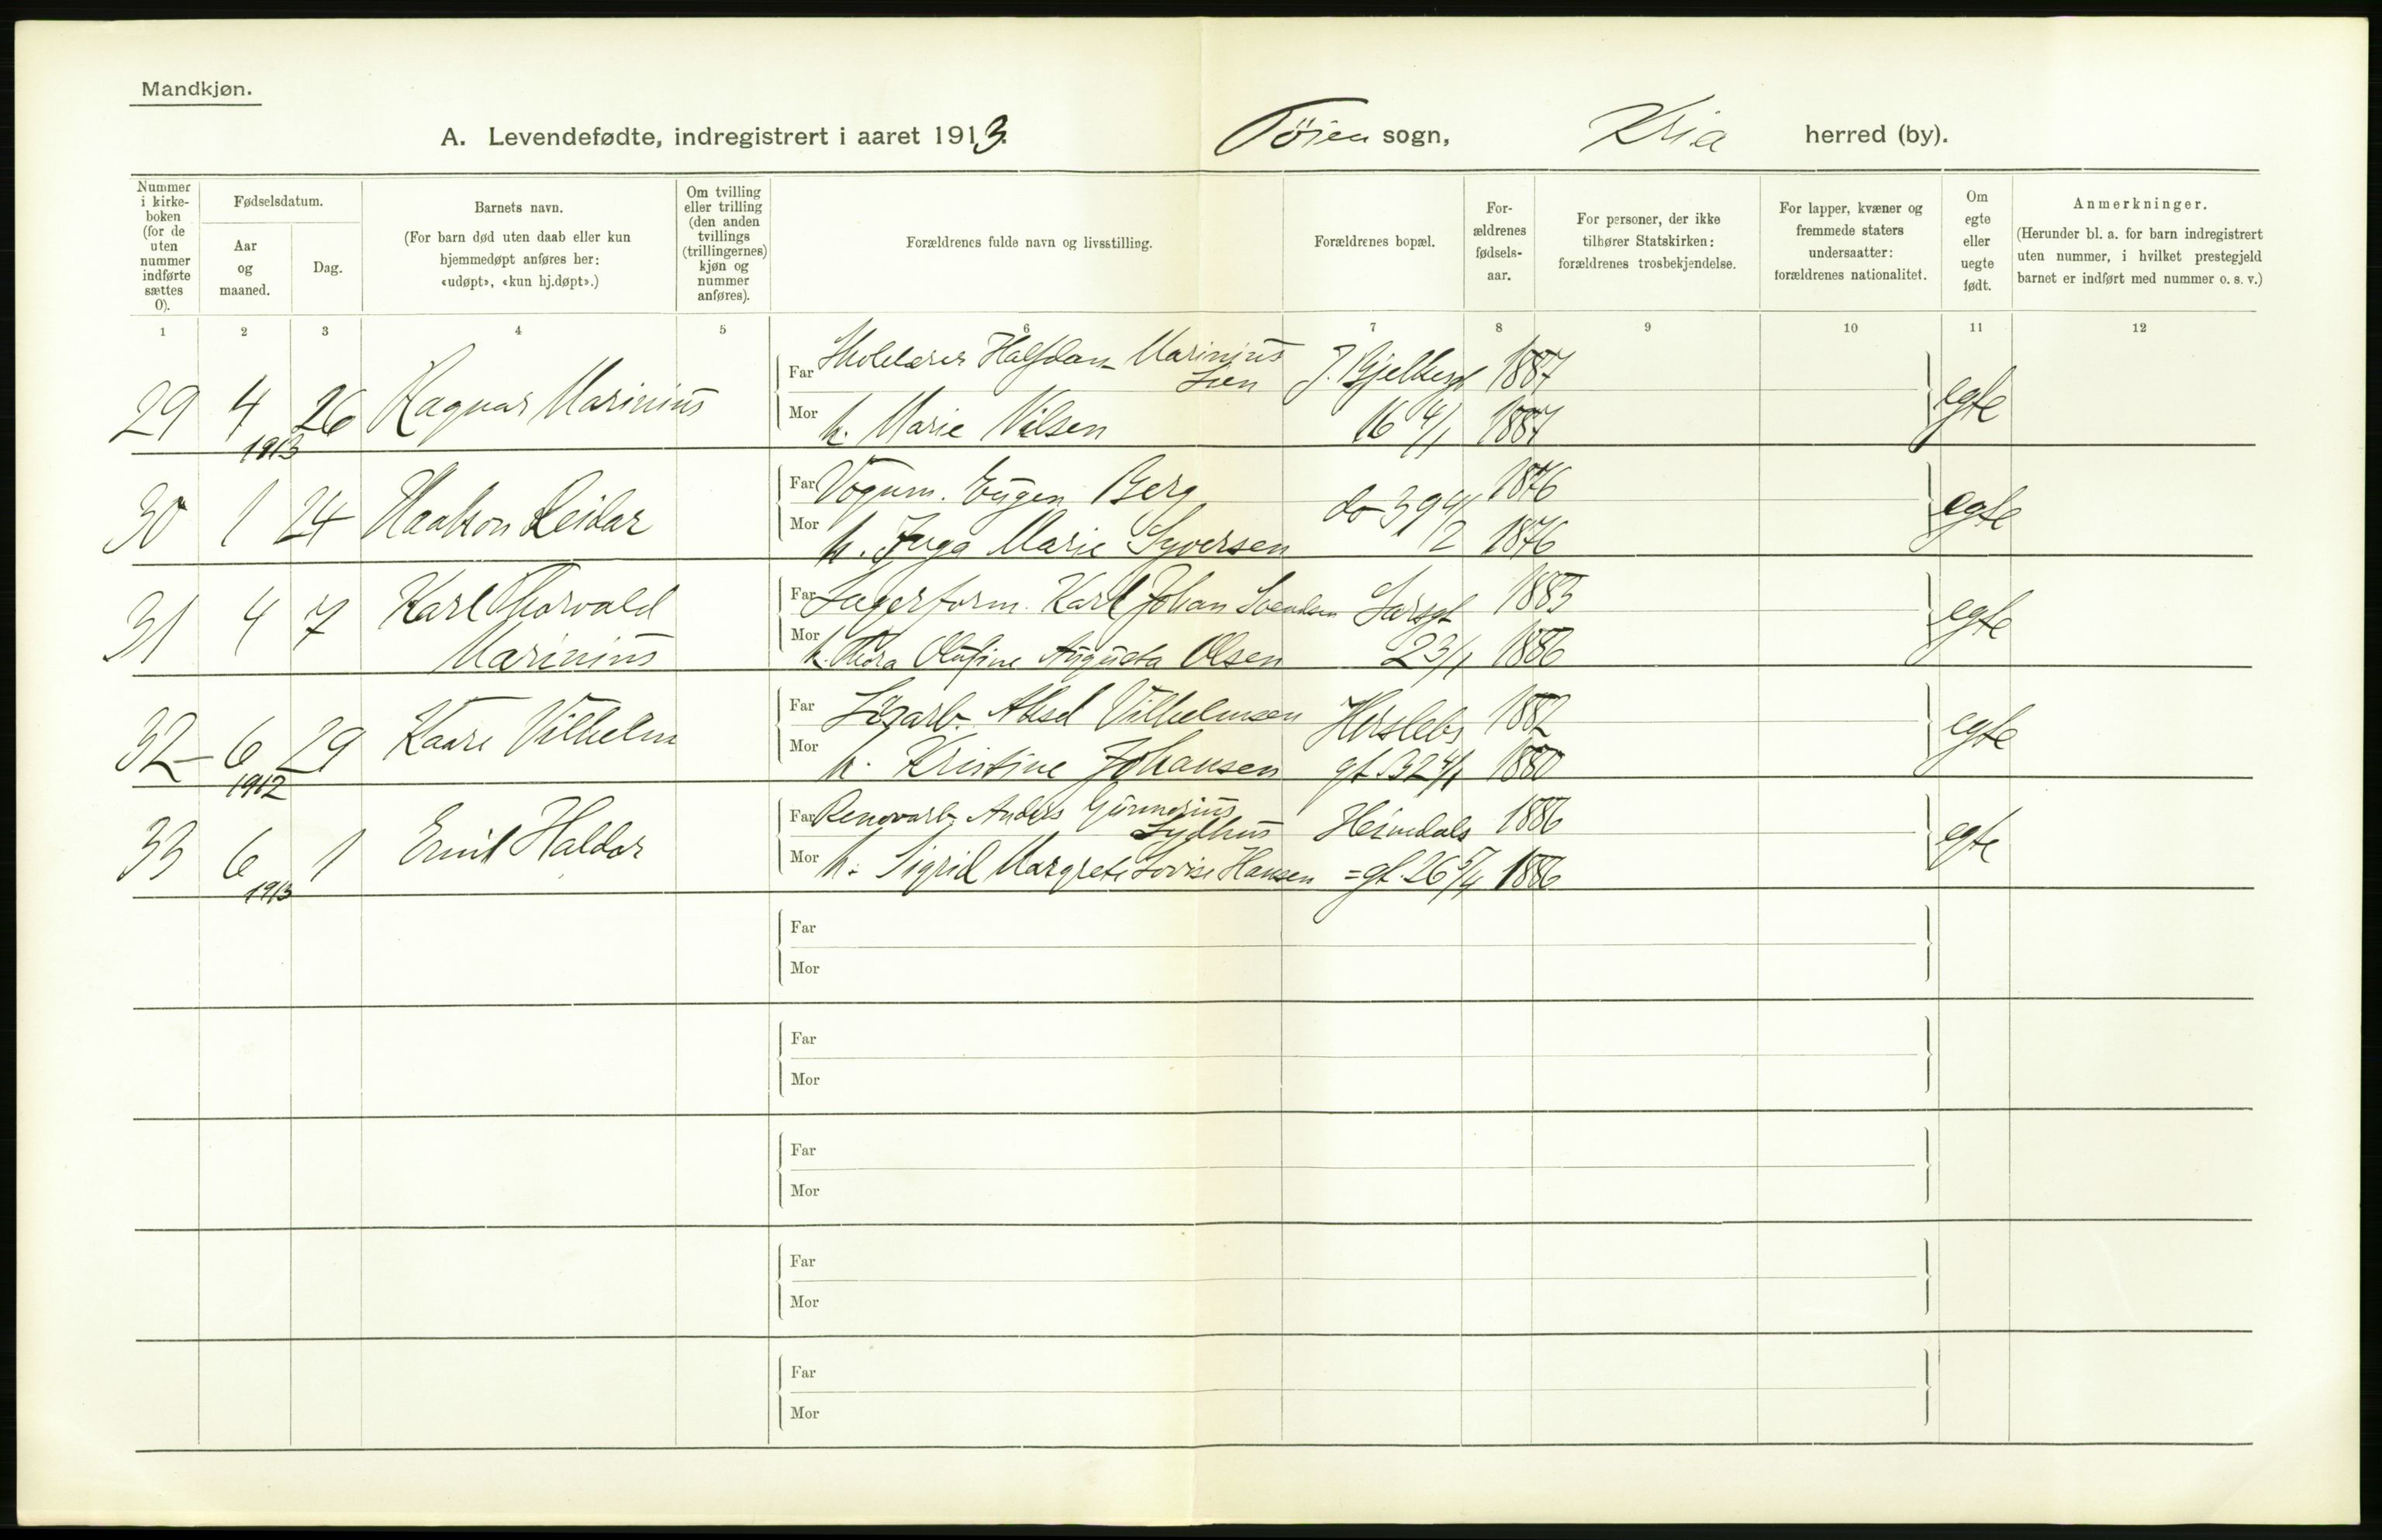 Mandkjøn.
A. Levendefødte, indregistrert i aaret 1913. Töien sogn, Kria herred (by).
Nummer i kirke- boken (for de uten nummer indførte sættes 0).
Fødselsdatum.
Aar og maaned.
Dag.
Barnets navn.
(For barn død uten daab eller kun hjemmedøpt anføres her: «udøpt», «kun hj.døpt».)
Om tvilling eller trilling (den anden tvillings (trillingernes) kjøn og nummer anføres).
Forældrenes fulde navn og livsstilling.
Forældrenes bopæl.
For- ældrenes fødsels- aar.
For personer, der ikke tilhører Statskirken: forældrenes trosbekjendelse.
For lapper, kvæner og fremmede staters undersaatter: forældrenes nationalitet.
Om egte eller uegte født.
Anmerkninger.
(Herunder bl. a. for barn indregistrert uten nummer, i hvilket prestegjeld barnet er indført med nummer o. s. v.)
1 2 3 4 5 6 7 8 9 10 11 12
Far Halfdan Marinius Lien 1887
29 4 26 Ragnar Marinius egte
Mor h. Marie Nilsen 16 4/1 1887
1913
Far Vognm. Eugen Berg do 39 4/2 1876
30 1 24 Haakon Reidar egte
Mor h. Inga Marie Syversen 1876
Far Lagerform. Karl Johan Svendsen Larsgt 1883
31 4 7 Karl Thorvald Marinius egte
Mor h. Thora Olufine Augusta Olsen 23/1 1886
Far Aksel Vilhelmsen Herslebs 1882
32 6 29 Kaare Vilhelm egte
Mor h. Kristine Johansen gt. B2 4/1 1880
1912
Far Renovarb. Anders Gunnerius Sydhus Heimdals 1886
33 6 1 Emil Haldor egte
Mor h. Sigrid Margrete Lovise Hansen =gt. 26 5/4 1886
1913
Far
Mor
Far
Mor
Far
Mor
Far
Mor
Far
Mor